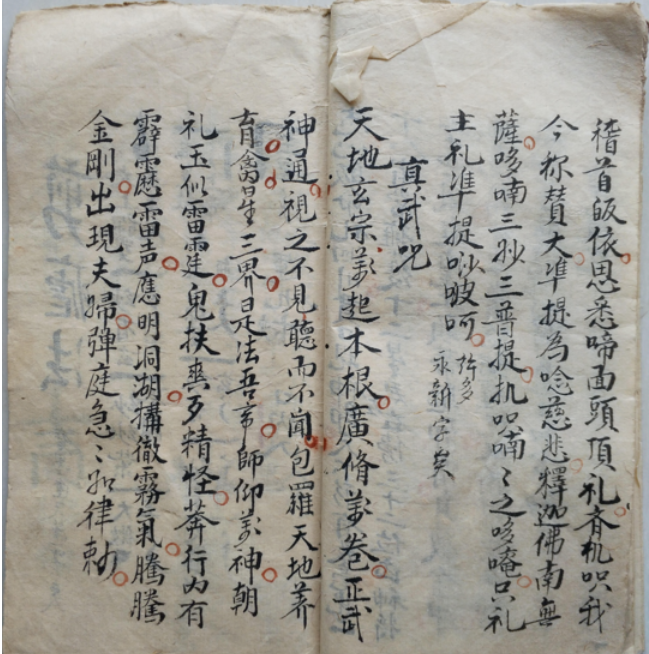 稽首皈依思悉啼面頭頂礼斉机呗我
今称賛大準提為唸慈悲釋迦佛南無
薩哆喃三妙三普提扎叺喃〻之哆唵只礼
主礼準提唦啵呵 許多
永新字矣
真武咒
天地玄宗萬起本根廣脩萬卷正武
神通視之不見聽而不闻包羅天地养
育禽星三界是法吾帝師仰萬神朝
礼玉似雷霆鬼扶爽歹精怪莽行内有
霹靂雷声應明洞湖搆徹霧氣騰騰
金剛出現夫婦弹庭急〻如律勅